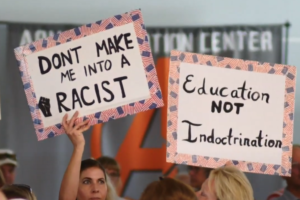 DONT MAKE
ME INTO A
RACIST
Education
NOT
Indoctrination
CENTER